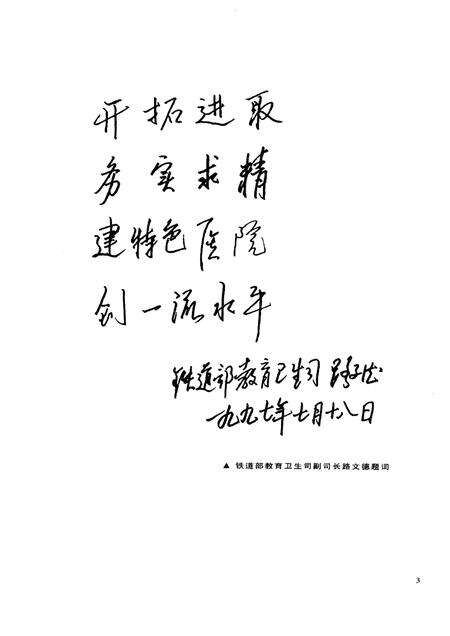 开拓进取
务实求精
建特色医院
创一流水平
铁道部教育卫生司 路文德
一九九七年七月十八日
▲ 铁道部教育卫生司副司长路文德题词
3